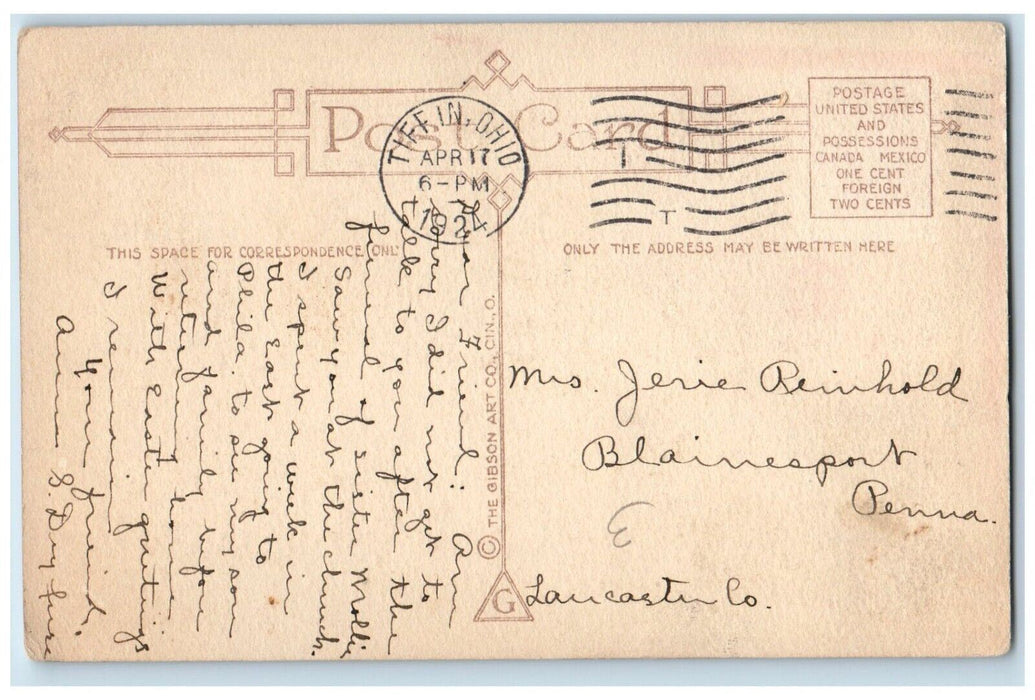 Post Card
TIFFIN, OHIO
APR 17
6-PM
1924
POSTAGE
UNITED STATES
AND
POSSESSIONS
CANADA MEXICO
ONE CENT
FOREIGN
TWO CENTS
THIS SPACE FOR CORRESPONDENCE ONL
ONLY THE ADDRESS MAY BE WRITTEN HERE
Dear Friend: Am
sorry I did not get to
talk to you after the
funeral of sister Mollie
Saw you at the church.
I spent a week in
the East going to
Phila. to see my son
and family before
returning home
With Easter greetings
I remain
Your friend,
Anna S.
© THE GIBSON ART CO., CIN., O.
G
Mrs. Jerie Reinhold
Blainesport
Penna.
Lancaster Co.
3
T
T